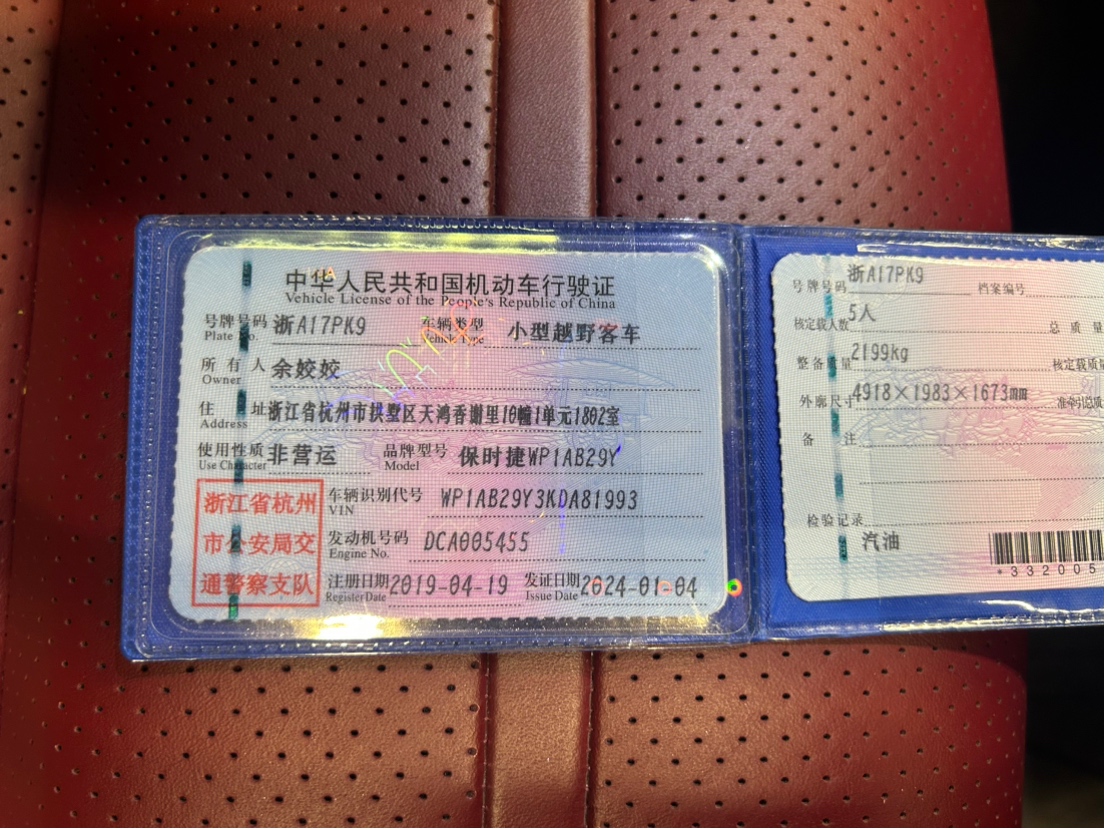 中华人民共和国机动车行驶证
Vehicle License of the People's Republic of China
号牌号码 浙A17PK9 车辆类型 小型越野客车
Plate No. Vehicle Type
所有人 余姣姣
Owner
住址 浙江省杭州市拱墅区天鸿香榭里10幢1单元1802室
Address
使用性质 非营运 品牌型号 保时捷WP1AB29Y
Use Character Model
浙江省杭州
市公安局交
通警察支队
车辆识别代号 WP1AB29Y3KDA81993
VIN
发动机号码 DCA005455
Engine No.
注册日期 2019-04-19 发证日期 2024-01-04
Register Date Issue Date
号牌号码 浙A17PK9 档案编号
核定载人数 5人 总质量
整备质量 2199kg 核定载质量
外廓尺寸 4918×1983×1673mm 准牵引总质
备注
检验记录
汽油
*332005